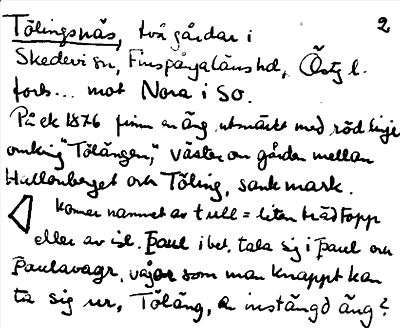 2
Tölingsnäs, två gårdar i
Skedevi sn, Finspångalänshd, Östg l.
forts... mot Nora i So.
På ek 1876 finn en äng utmärkt med röd linje
omkring "Tölängen," väster om gården mellan
Hultberget och Töling, sank mark.
Komer namnet av tull = liten trädtopp
eller av isl. Þaul i bet. tala sig i þaul och
Þaulavagr, vågor som man knappt kan
ta sig ur, Töläng, en instängd äng?